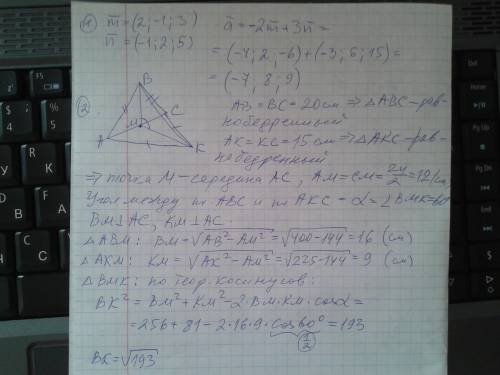 ① m̅ = (2; -1; 3)   a̅ = -2m̅ + 3n̅ =
n̅ = (-1; 2; 5)   = (-4; 2; -6) + (-3; 6; 15) =
= (-7, 8, 9)
②
B
M
C
A
K
AB = BC = 20см ⇒ △ABC - рав-
нобедренный
AK = KC = 15см ⇒ △AKC - рав-
нобедренный
⇒ точка M - середина AC, AM = CM = 24/2 = 12 см,
Угол между пл ABC и пл AKC - α = ∠BMK = 60
BM ⊥ AC, KM ⊥ AC.
△ABM: BM = √(AB² - AM²) = √(400-144) = 16 (см)
△AKM: KM = √(AK² - AM²) = √(225-144) = 9 (см)
△BMK: по теор. косинусов:
BK² = BM² + KM² - 2·BM·KM·cosα =
= 256 + 81 - 2·16·9·cos60° = 193
1/2
BK = √193
Home
PgUp
PgDn
End
Fn